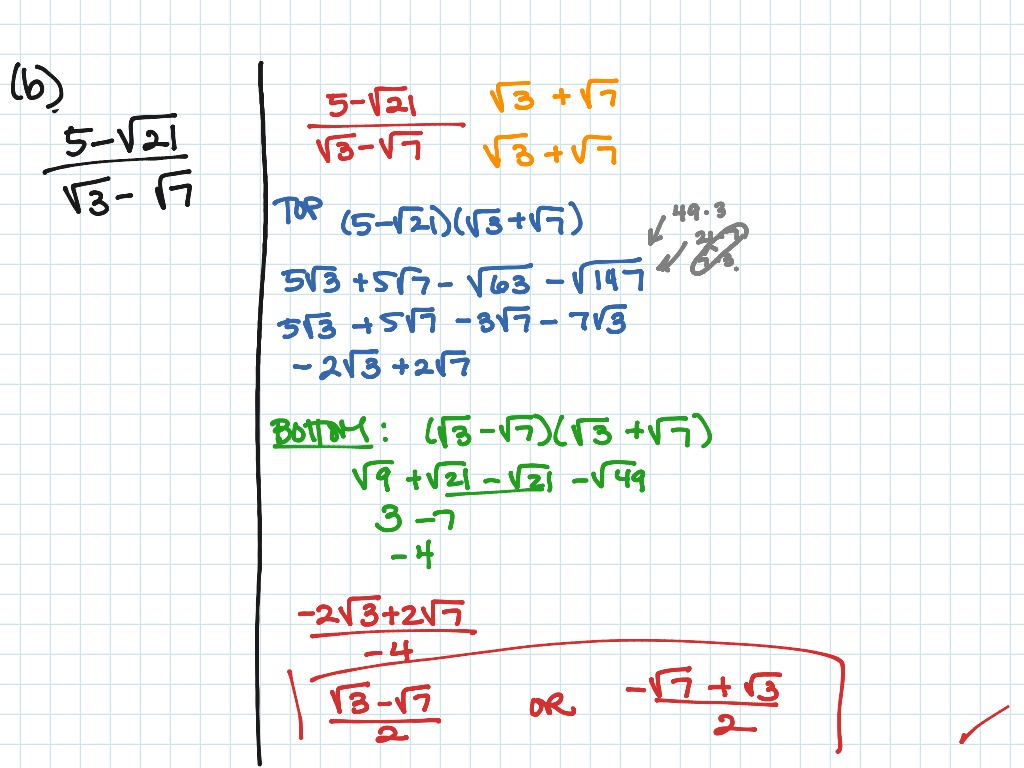 (b)
5-√21
√3 - √7
5-√21 √3 + √7
√3 - √7 √3 + √7
TOP (5-√21)(√3+√7)
49·3
5√3 + 5√7 - √63 - √147
5√3 + 5√7 - 3√7 - 7√3
- 2√3 + 2√7
BOTTOM: (√3 - √7)(√3 + √7)
√9 + √21 - √21 - √49
3 - 7
- 4
-2√3+2√7
-4
√3 - √7 OR -√7 + √3
2 2